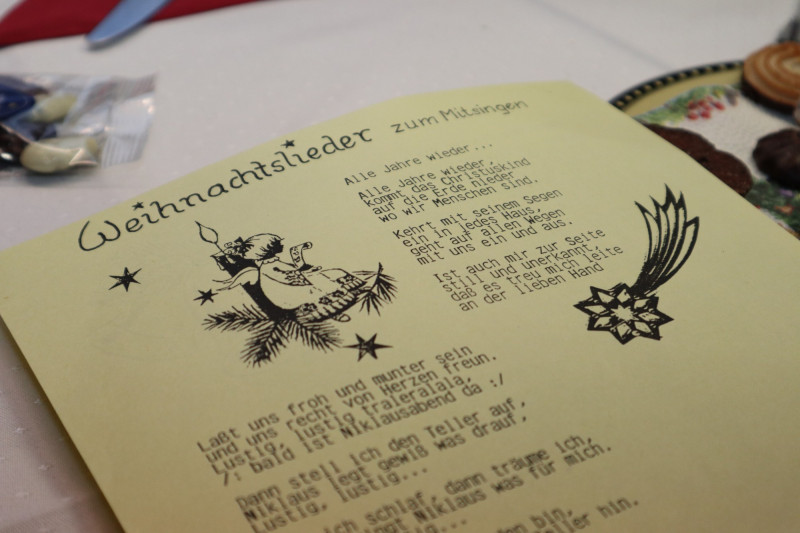 Weihnachtslieder zum Mitsingen
Alle Jahre wieder...
Alle Jahre wieder,
kommt das Christuskind
auf die Erde nieder
wo wir Menschen sind.
Kehrt mit seinem Segen
ein in jedes Haus,
geht auf allen Wegen
mit uns ein und aus.
Ist auch mir zur Seite
still und unerkannt,
daß es treu mich leite
an der lieben Hand
Laßt uns froh und munter sein
und uns recht von Herzen freun.
Lustig, lustig traleralala,
/: bald ist Niklausabend da :/
Dann stell ich den Teller auf,
Niklaus legt gewiß was drauf,
Lustig, lustig...
ich schlaf, dann träume ich,
Niklaus was für mich.
bin,
hin.